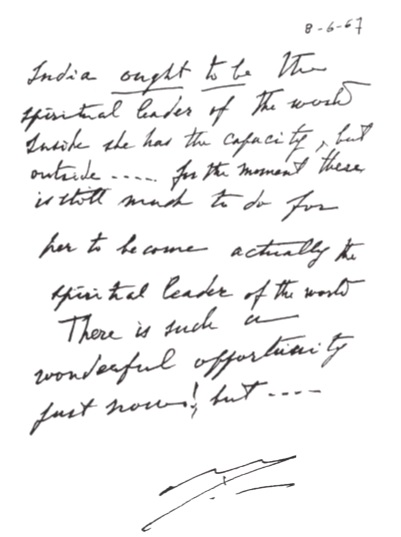 8-6-67
India ought to be the
spiritual leader of the world
Inside she has the capacity, but
outside ..... for the moment there
is still much to do for
her to become actually the
spiritual leader of the world
There is such a
wonderful opportunity
just now! but ----